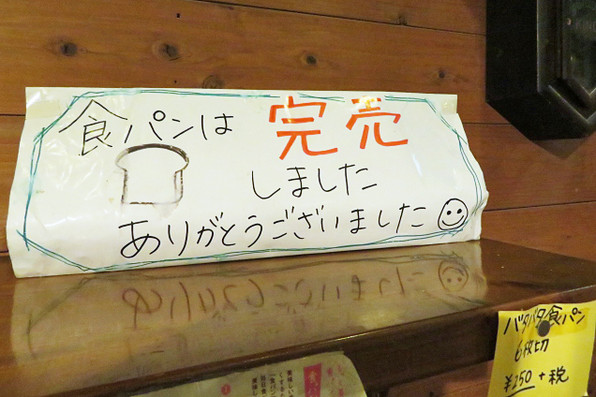 食パンは 完売
しました
ありがとうございました
バタバタ食パン
6枚切
¥250+税